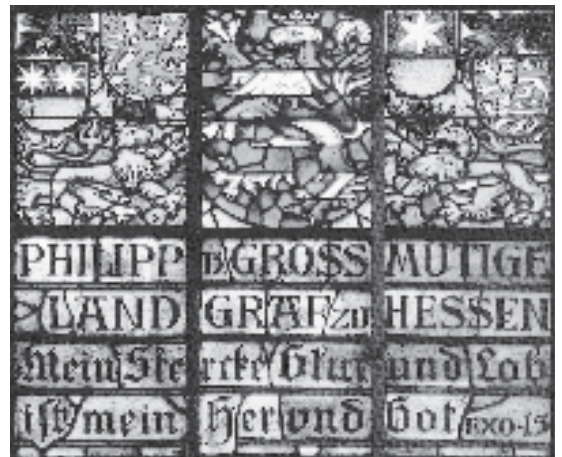 PHILIPP D GROSS MUTIGE
LAND GRAF ZU HESSEN
Mein Ste rcke und Lob
ist mein Her vnd Got EXO-15